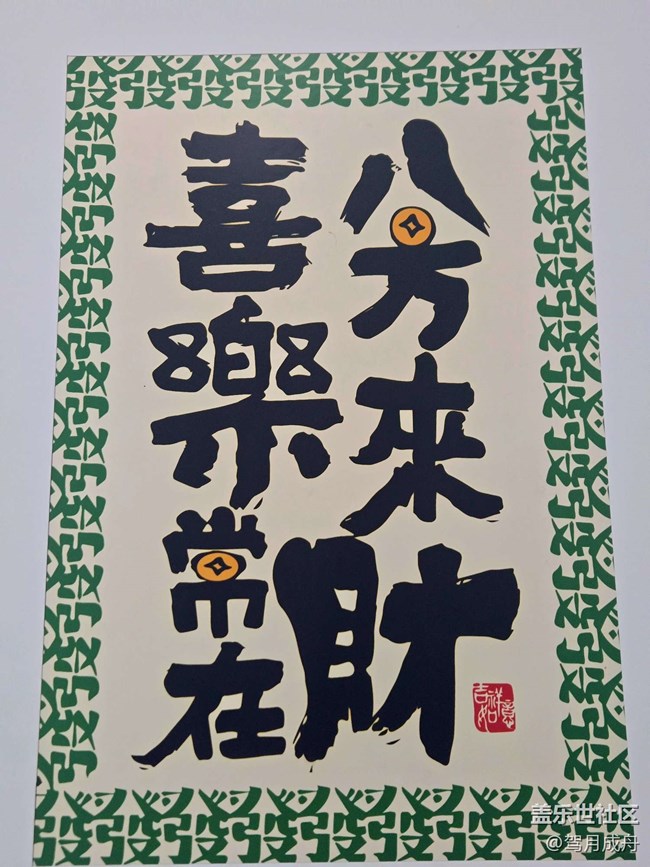 八方來財
喜樂常在
吉祥如意
盖乐世社区
@驾月成舟